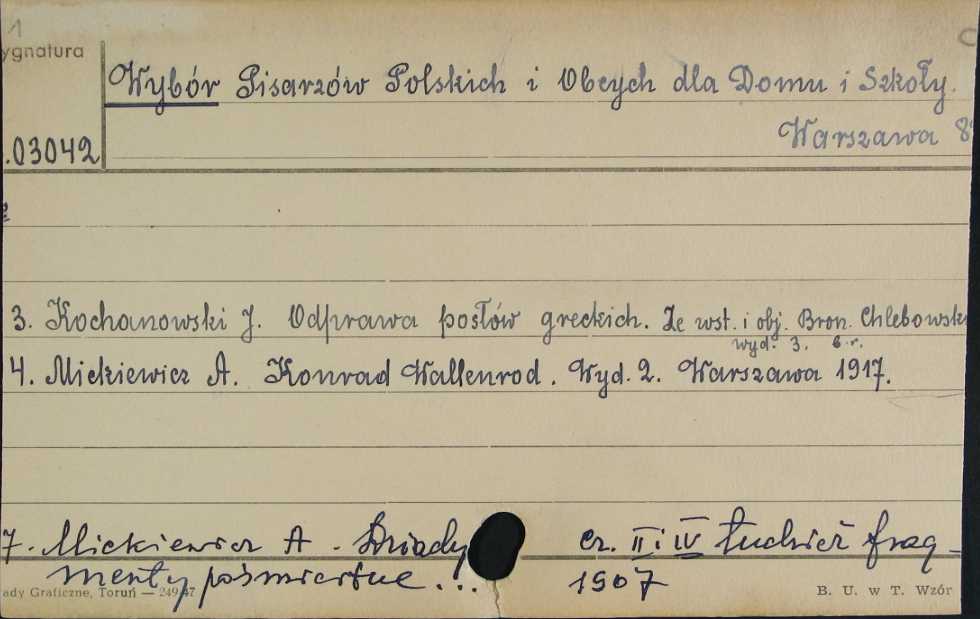 1
ygnatura
Wybór Pisarzów Polskich i Obcych dla Domu i Szkoły.
Warszawa 8
.03042
3. Kochanowski J. Odprawa posłów greckich. Ze wst. i obj. Bron. Chlebowski
wyd. 3. b.r.
4. Mickiewicz A. Konrad Wallenrod. Wyd. 2. Warszawa 1917.
7. Mickiewicz A. Dziady cz. II i IV tudzież frag-
menty pośmiertne... 1907
ady Graficzne, Toruń — 249/47
B. U. w T. Wzór